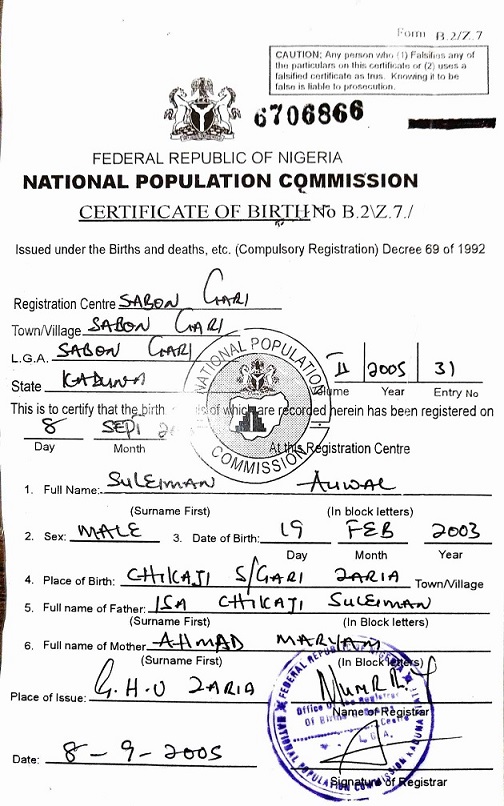 Form B.2/Z.7
CAUTION: Any person who (1) Falsifies any of
the particulars on this certificate or (2) uses a
falsified certificate as true. Knowing it to be
false is liable to prosecution.
6706866
FEDERAL REPUBLIC OF NIGERIA
NATIONAL POPULATION COMMISSION
CERTIFICATE OF BIRTH No B.2\Z.7./
Issued under the Births and deaths, etc. (Compulsory Registration) Decree 69 of 1992
Registration Centre SABON GARI
Town/Village SABON GARI
L.G.A. SABON GARI
State KADUNA
NATIONAL POPULATION COMMISSION
II 2005 31
Volume Year Entry No
This is to certify that the birth of which are recorded herein has been registered on
8 SEPT
Day Month At this Registration Centre
1. Full Name: SULEIMAN AUWAL
(Surname First) (In block letters)
2. Sex: MALE 3. Date of Birth: 19 FEB 2003
Day Month Year
4. Place of Birth: CHIKAJI S/GARI ZARIA Town/Village
5. Full name of Father: ISA CHIKAJI SULEIMAN
(Surname First) (In Block letters)
6. Full name of Mother AHMAD MARYAM
(Surname First) (In Block letters)
Place of Issue: G.H.U ZARIA
Name of Registrar
Date: 8-9-2005
Signature of Registrar